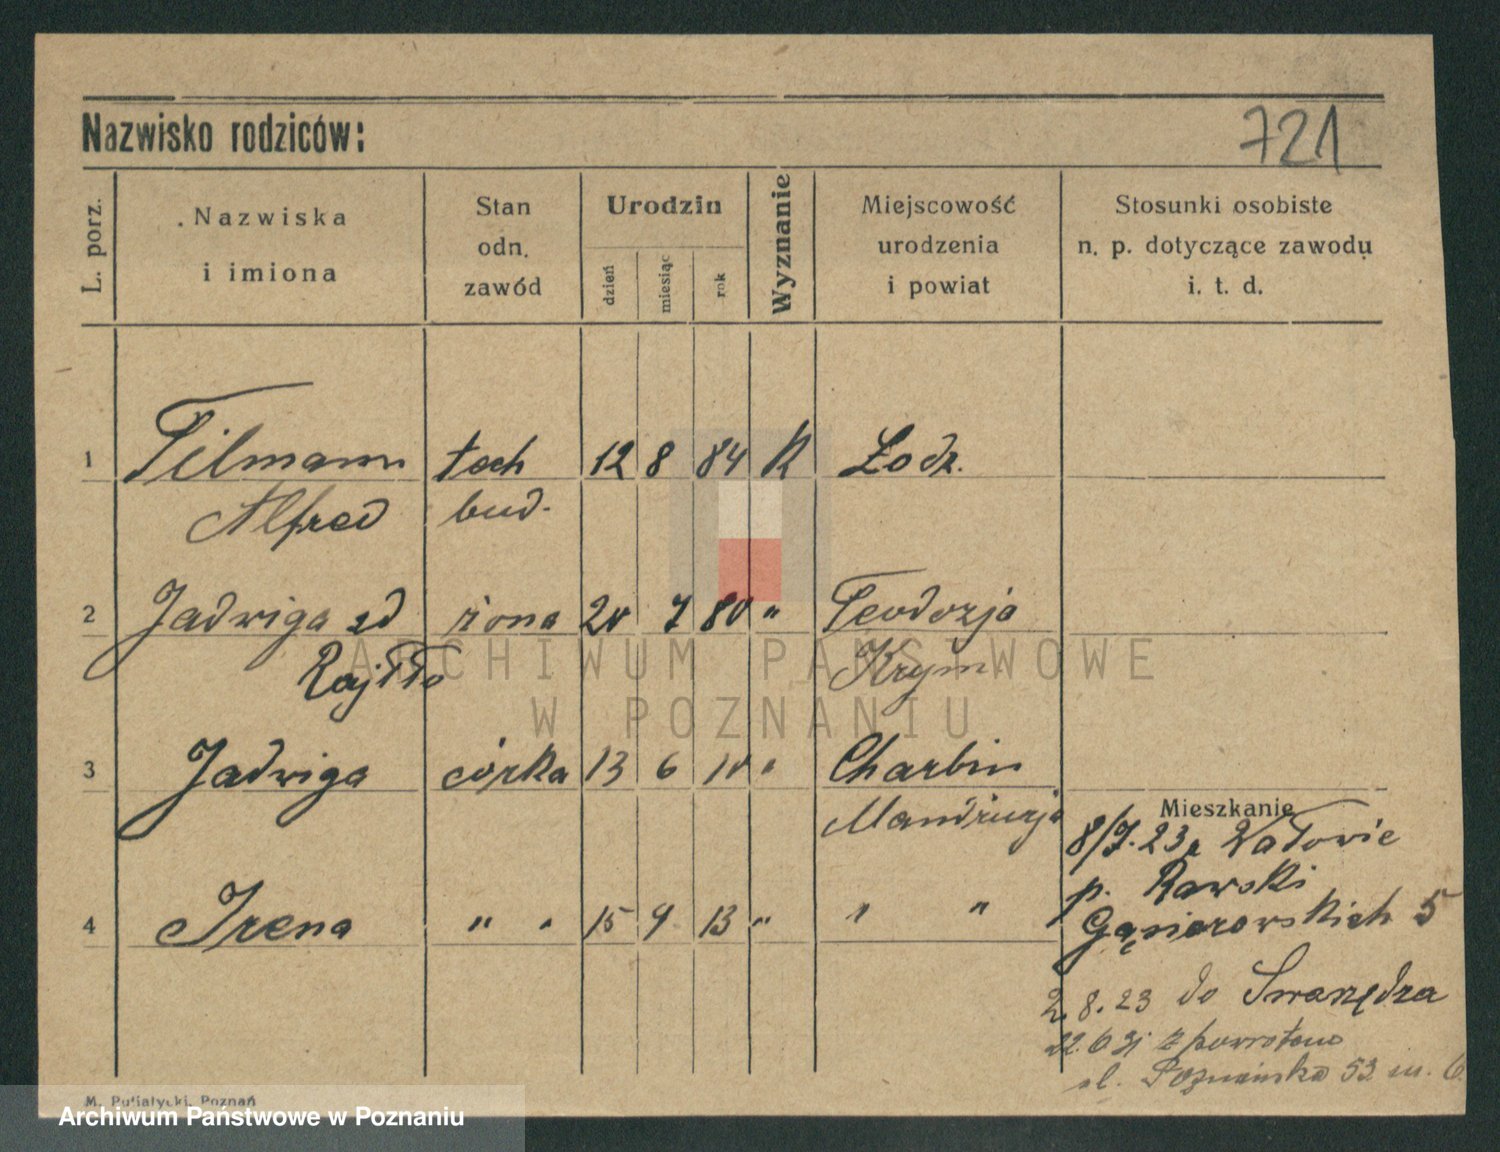 Nazwisko rodziców:
721
L. porz.
Nazwiska
i imiona
Stan
odn.
zawód
Urodzin
dzień
miesiąc
rok
Wyznanie
Miejscowość
urodzenia
i powiat
Stosunki osobiste
n. p. dotyczące zawodu
i. t. d.
1 Tilmann tech 12 8 84 K Łodz.
Alfred bud.
2 Jadwiga zd żona 20 7 80 " Teodozja
Rajtto Krym
3 Jadwiga córka 13 6 10 " Charbin
Mandżurja
4 Irena " " 15 9 13 " " "
Mieszkanie
8/7.23 z Watowic
p. Rawski
Gąsiorowskich 5
2.8.23 do Swarzędza
22.6 31 z powrotem
ul. Poznańska 53 m. 6
M. Putiatycki, Poznań
ARCHIWUM PAŃSTWOWE
W POZNANIU
Archiwum Państwowe w Poznaniu